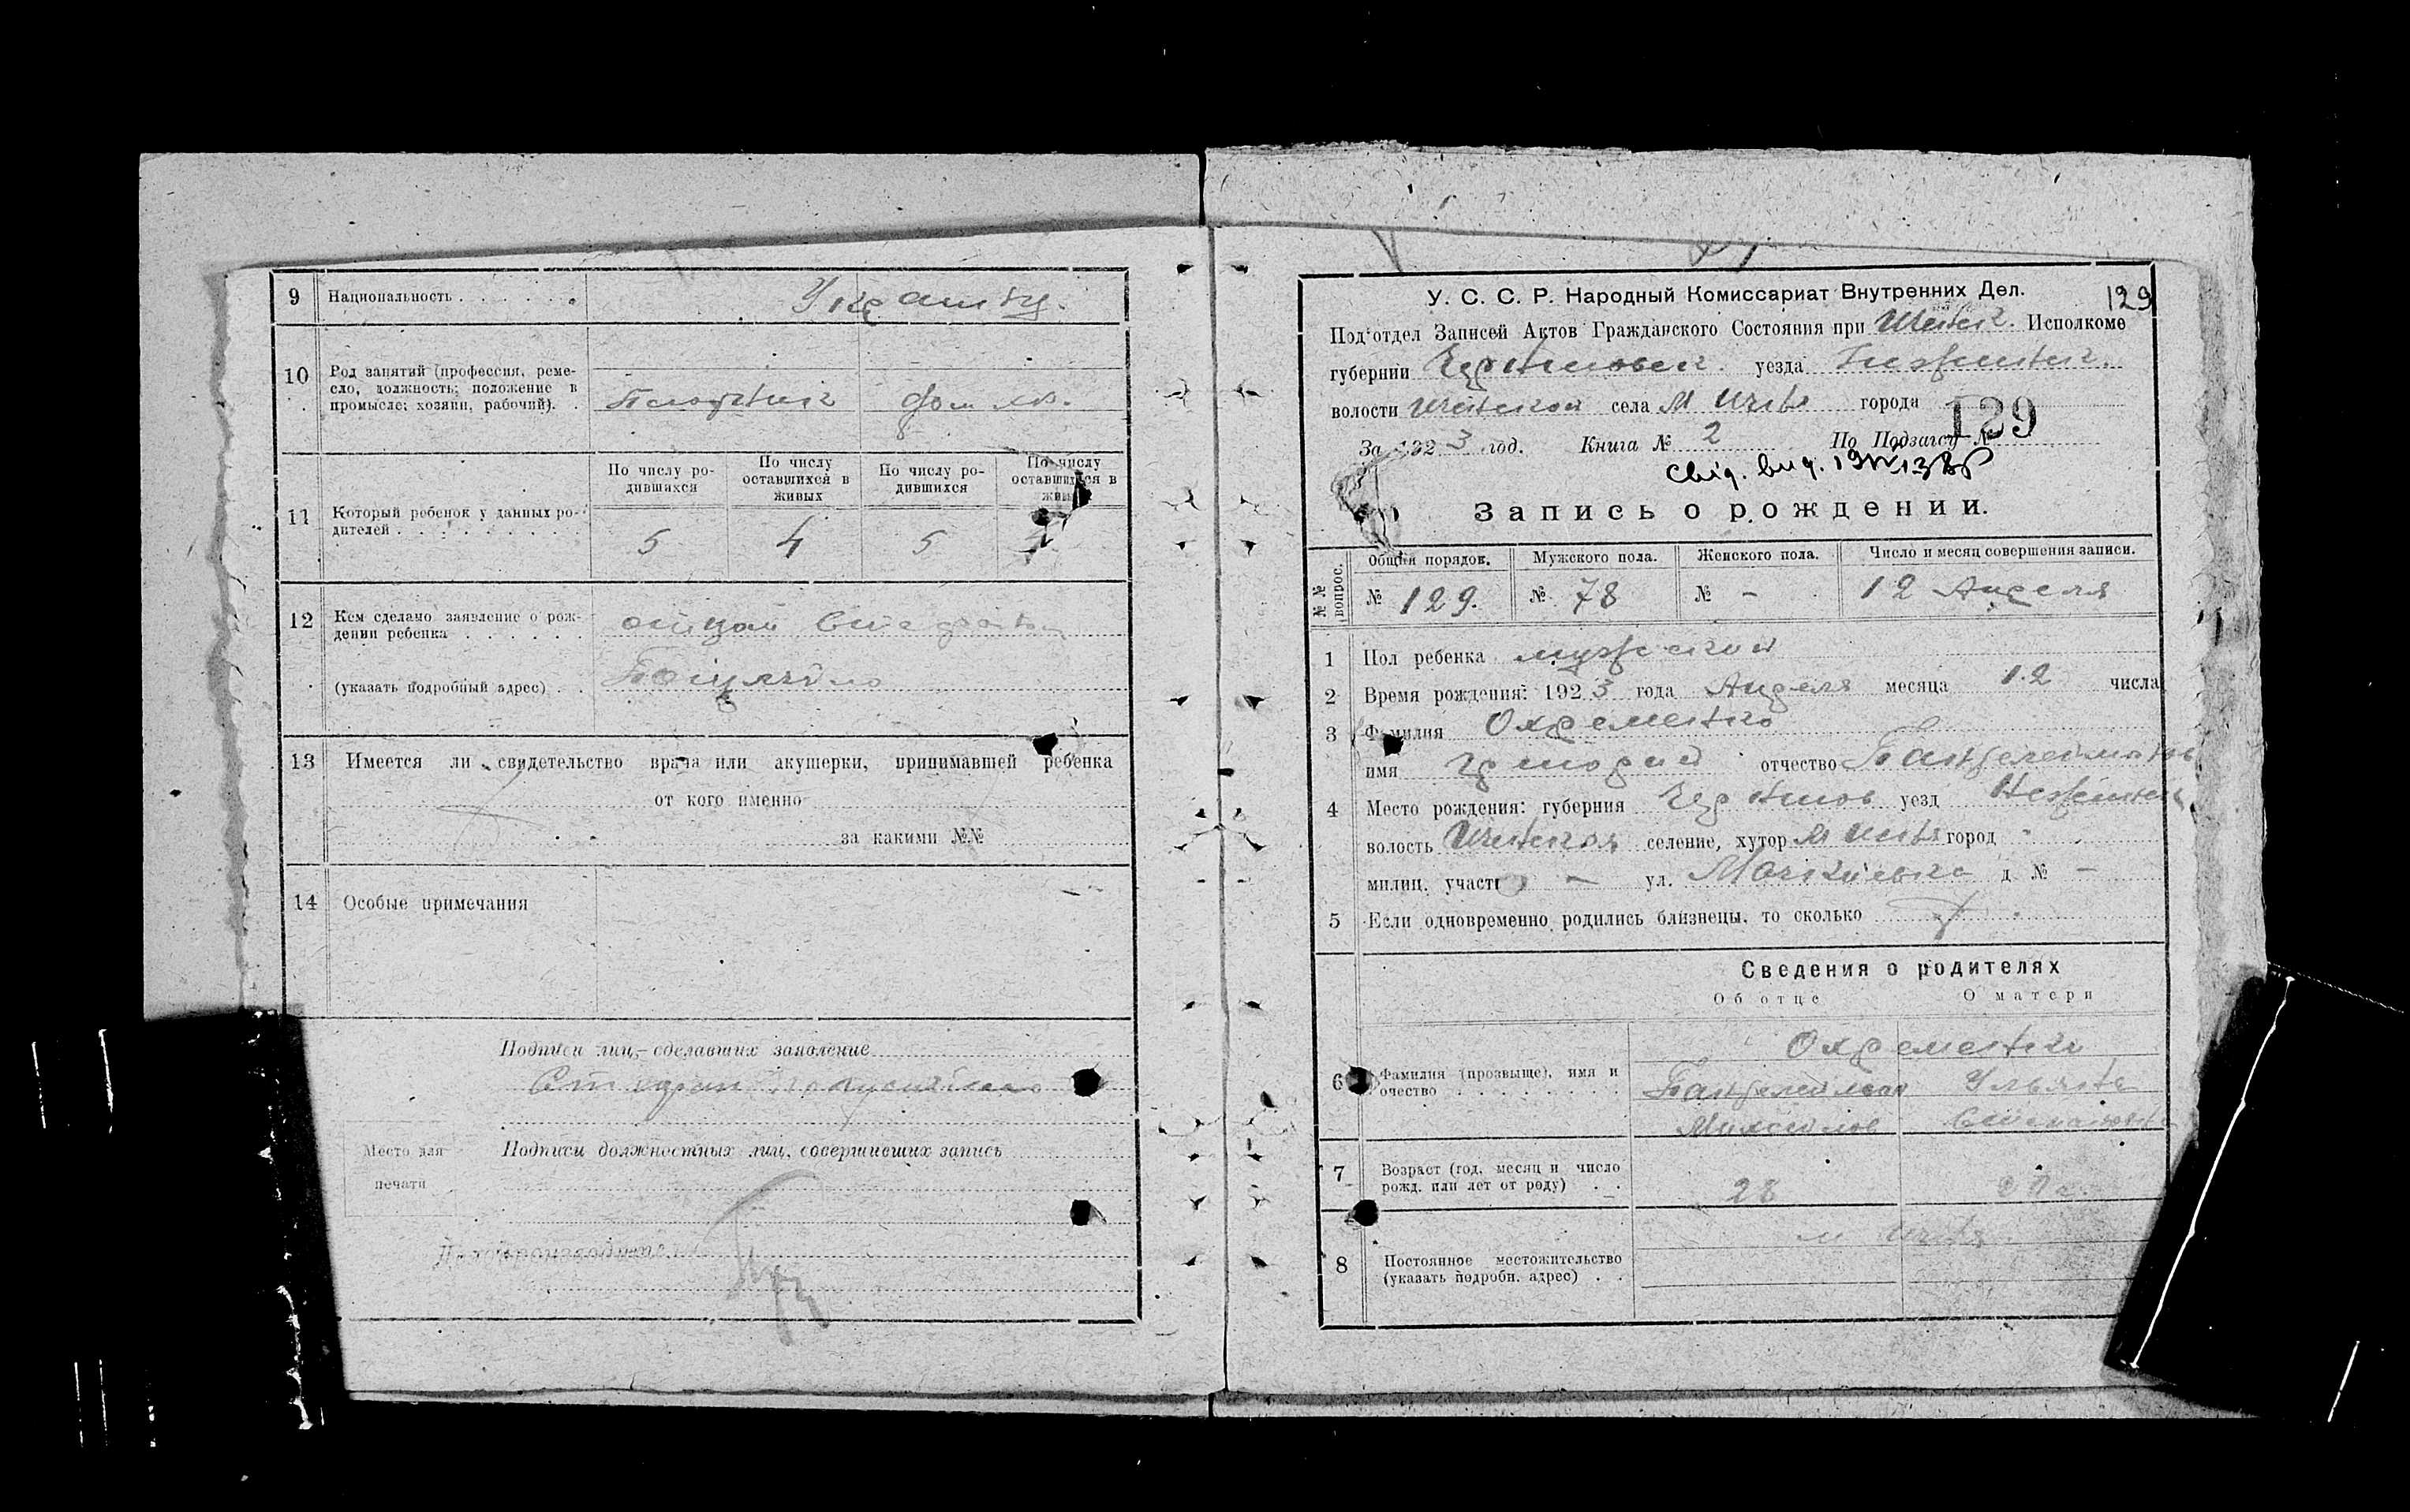 9 Национальность . . . . . .
Украинц.
10 Род занятий (профессия, реме-
сло, должность; положение в
промысле; хозяин, рабочий). .
Плотник дом хоз.
По числу ро-
дившихся
По числу
оставшихся в
живых
По числу ро-
дившихся
По числу
оставшихся в
живых
11 Который ребенок у данных ро-
дителей . . . . . . . . . .
5 4 5
12 Кем сделано заявление о рож-
дении ребенка . . . . . .
(указать подробный адрес) . .
13 Имеется ли свидетельство врача или акушерки, принимавшей ребенка
от кого именно
за какими №№
14 Особые примечания
Подписи лиц, сделавших заявление
Место для
печати
Подписи должностных лиц, совершивших запись
Делопроизводитель
129
У. С. С. Р. Народный Комиссариат Внутренних Дел.
Под‘отдел Записей Актов Гражданского Состояния при Ичнянск. Исполкоме
губернии Черниговск. уезда
волости Ичнянской села М Ичня города
129
За 1923 год. Книга № 2 По Подзагсу №
Запись о рождении.
№ № вопрос.
Общий порядок. Мужского пола. Женского пола. Число и месяц совершения записи.
№ 129. № 78 № - 12 Апреля
1 Пол ребенка мужской
2 Время рождения: 1923 года Апреля месяца 12 числа
3 Фамилия Охременко
имя Григорий отчество Пантелеймонов
4 Место рождения: губерния Чернигов уезд Нежинск
волость Ичнянская селение, хутор М Ичня город -
милиц. участ — ул. д № —
5 Если одновременно родились близнецы, то сколько
Сведения о родителях
Об отце О матери
Охременко
6 Фамилия (прозвище), имя и
очество . . . . . . . . .
Пантелеймон Ульяна
Михайлов Степанов
7 Возраст (год, месяц и число
рожд. или лет от роду) . .
28
м Ичня
8 Постоянное местожительство
(указать подробн. адрес) . .